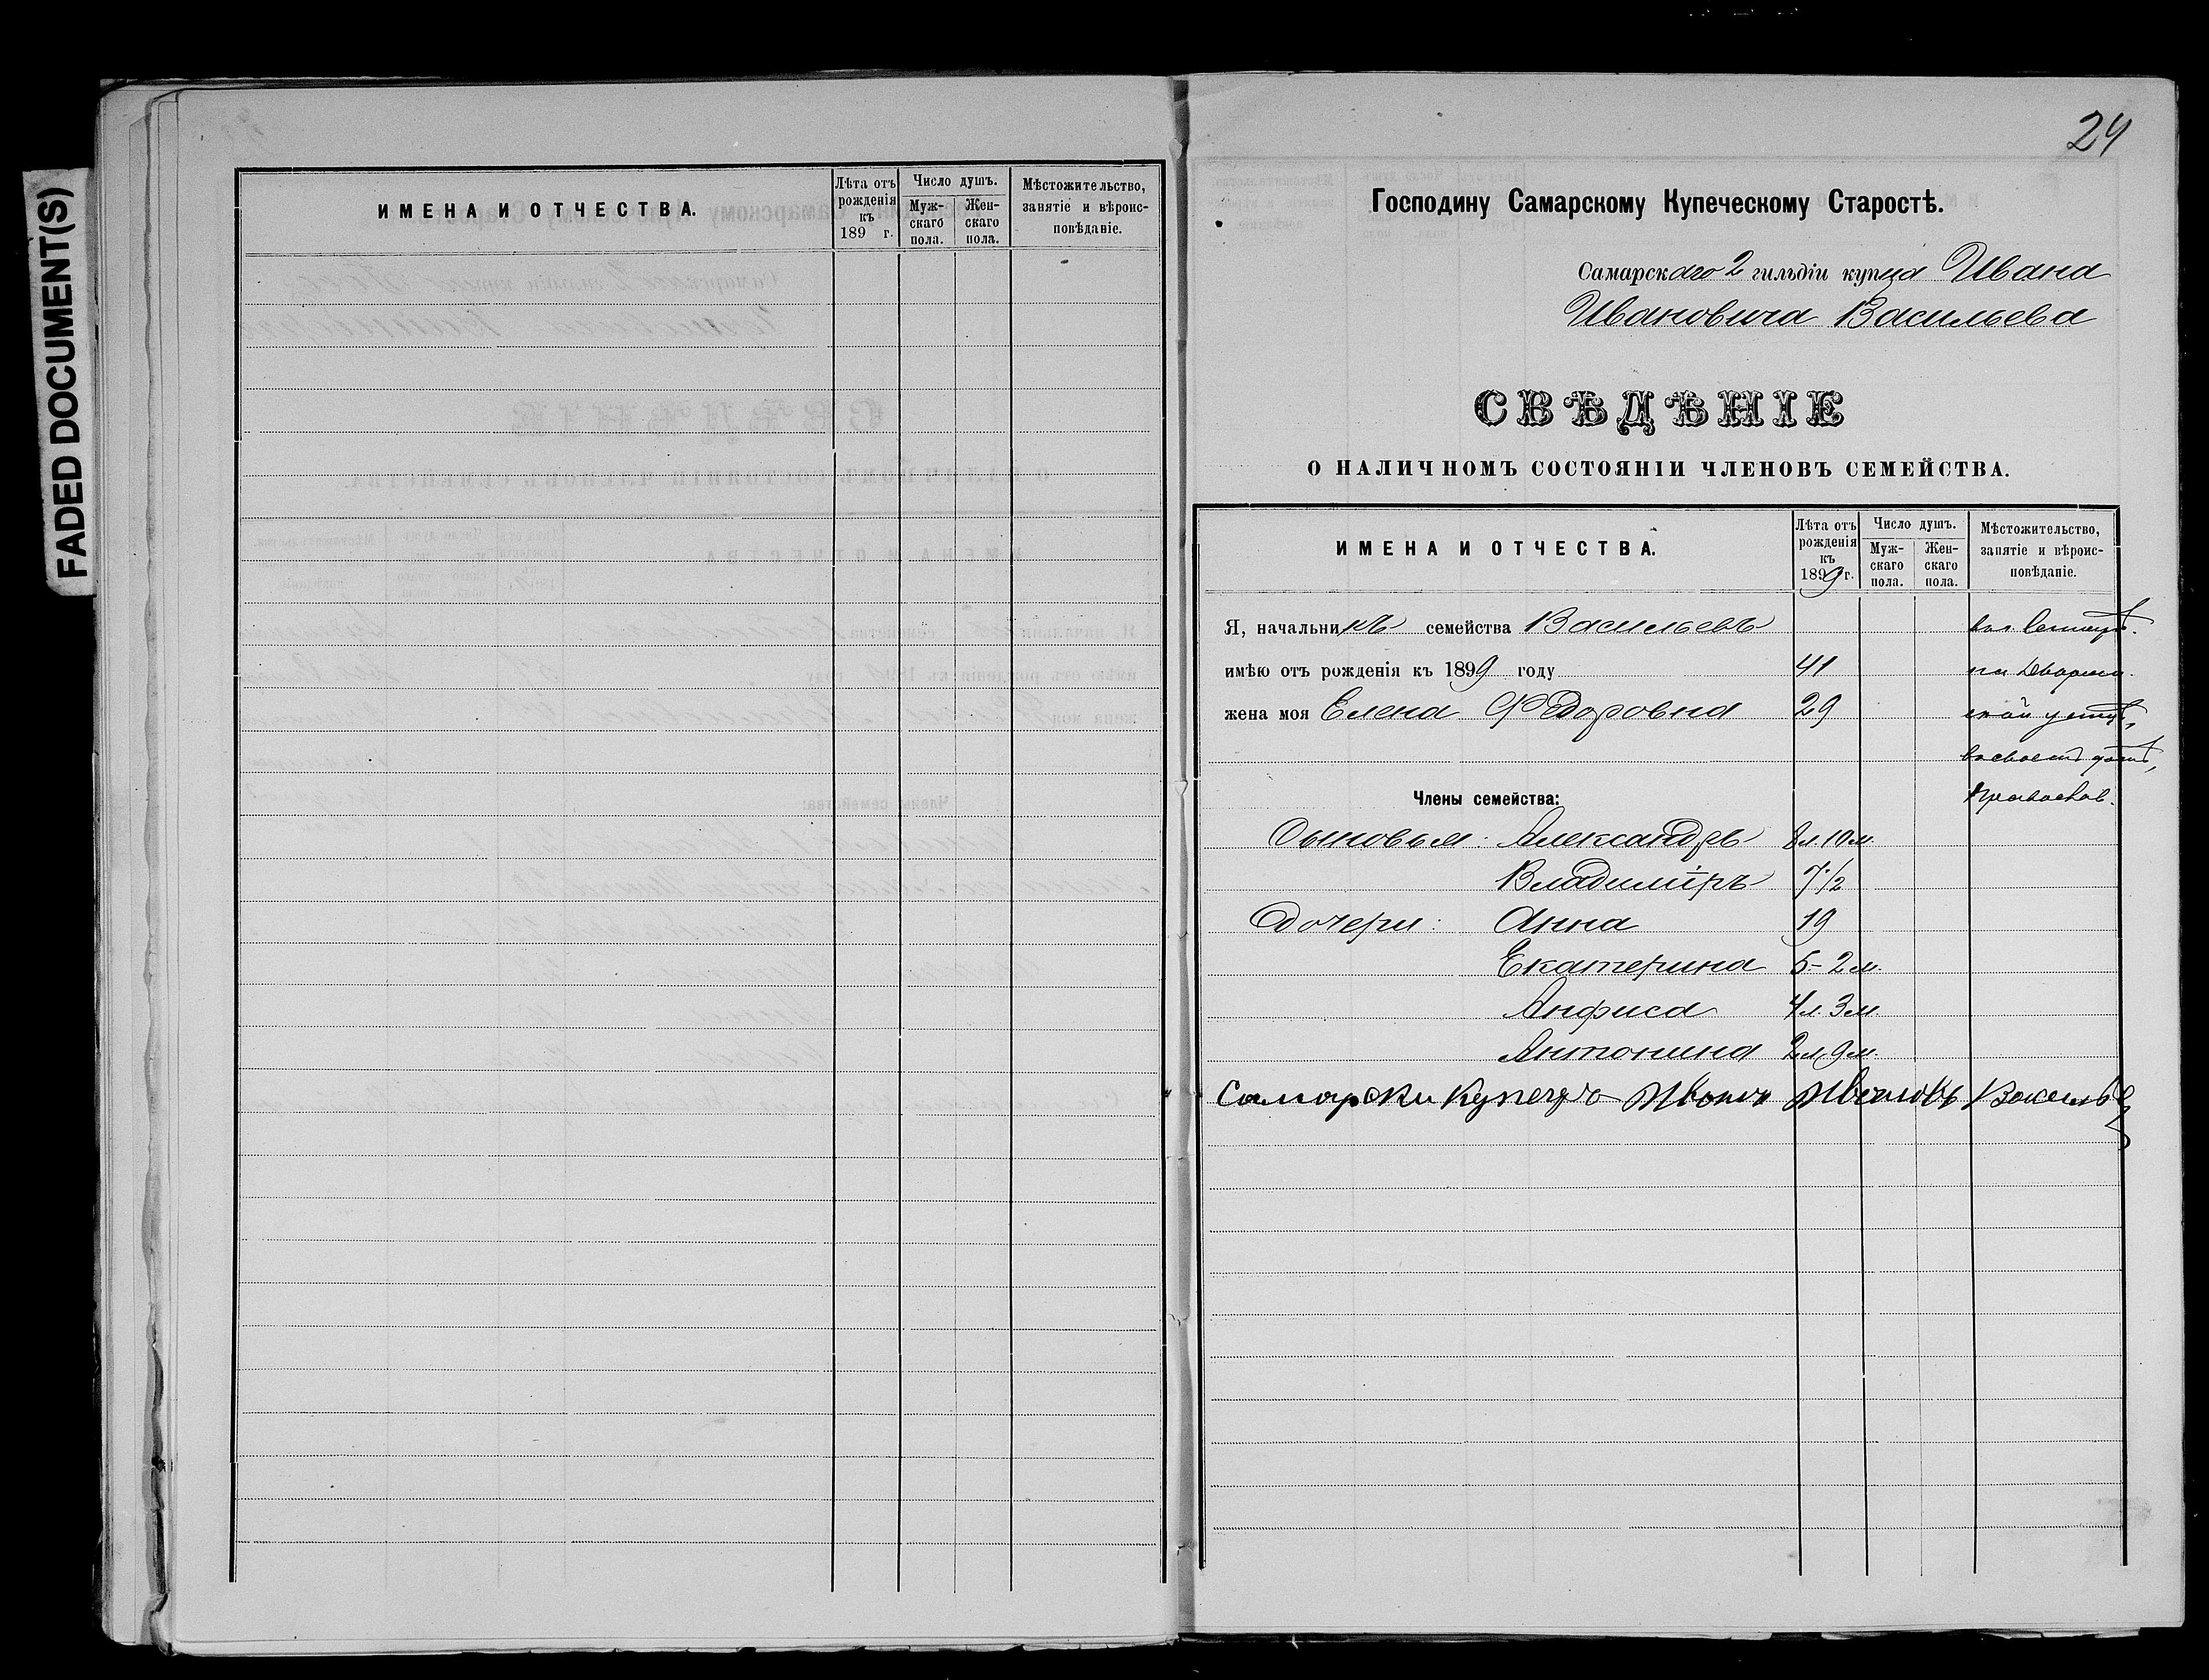 FADED DOCUMENT(S)
ИМЕНА И ОТЧЕСТВА.
Лѣта отъ рожденія къ 189 г.
Число душъ.
Мужскаго пола.
Женскаго пола.
Мѣстожительство, занятіе и вѣроисповѣданіе.
24
Господину Самарскому Купеческому Старостѣ.
Самарскаго 2 гильдіи купца Ивана
Ивановича Васильева
СВѢДѢНІЕ
О НАЛИЧНОМЪ СОСТОЯНІИ ЧЛЕНОВЪ СЕМЕЙСТВА.
ИМЕНА И ОТЧЕСТВА.
Лѣта отъ рожденія къ 1899 г.
Число душъ.
Мужскаго пола.
Женскаго пола.
Мѣстожительство, занятіе и вѣроисповѣданіе.
Я, начальникъ семейства Васильевъ
имѣю отъ рожденія къ 1899 году 41
жена моя Елена Федоровна 29
Православ.
Члены семейства:
Сыновья: Александръ 8 л. 10 м.
Владиміръ 7 1/2
Дочери: Анна 19
Екатерина 5 - 2 м.
Анфиса 4 л. 3 м.
Антонина 2 л. 9 м.
Самарски купецъ Иванъ Ивановъ Васильев